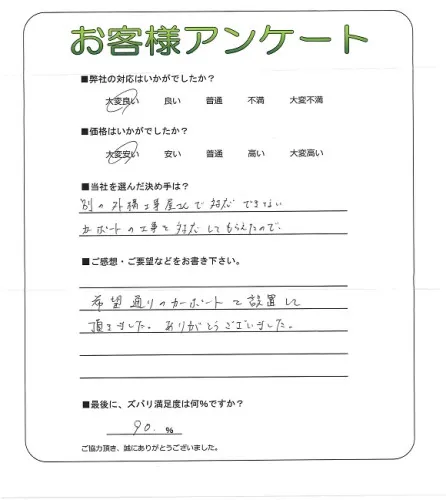 お客様アンケート
■弊社の対応はいかがでしたか？
大変良い 良い 普通 不満 大変不満
■価格はいかがでしたか？
大変安い 安い 普通 高い 大変高い
■当社を選んだ決め手は？
別の外構工事屋さんで対応できない
カーポートの工事を対応してもらえたので。
■ご感想・ご要望などをお書き下さい。
希望通りのカーポートを設置して
頂きました。ありがとうございました。
■最後に、ズバリ満足度は何%ですか？
90. %
ご協力頂き、誠にありがとうございました。